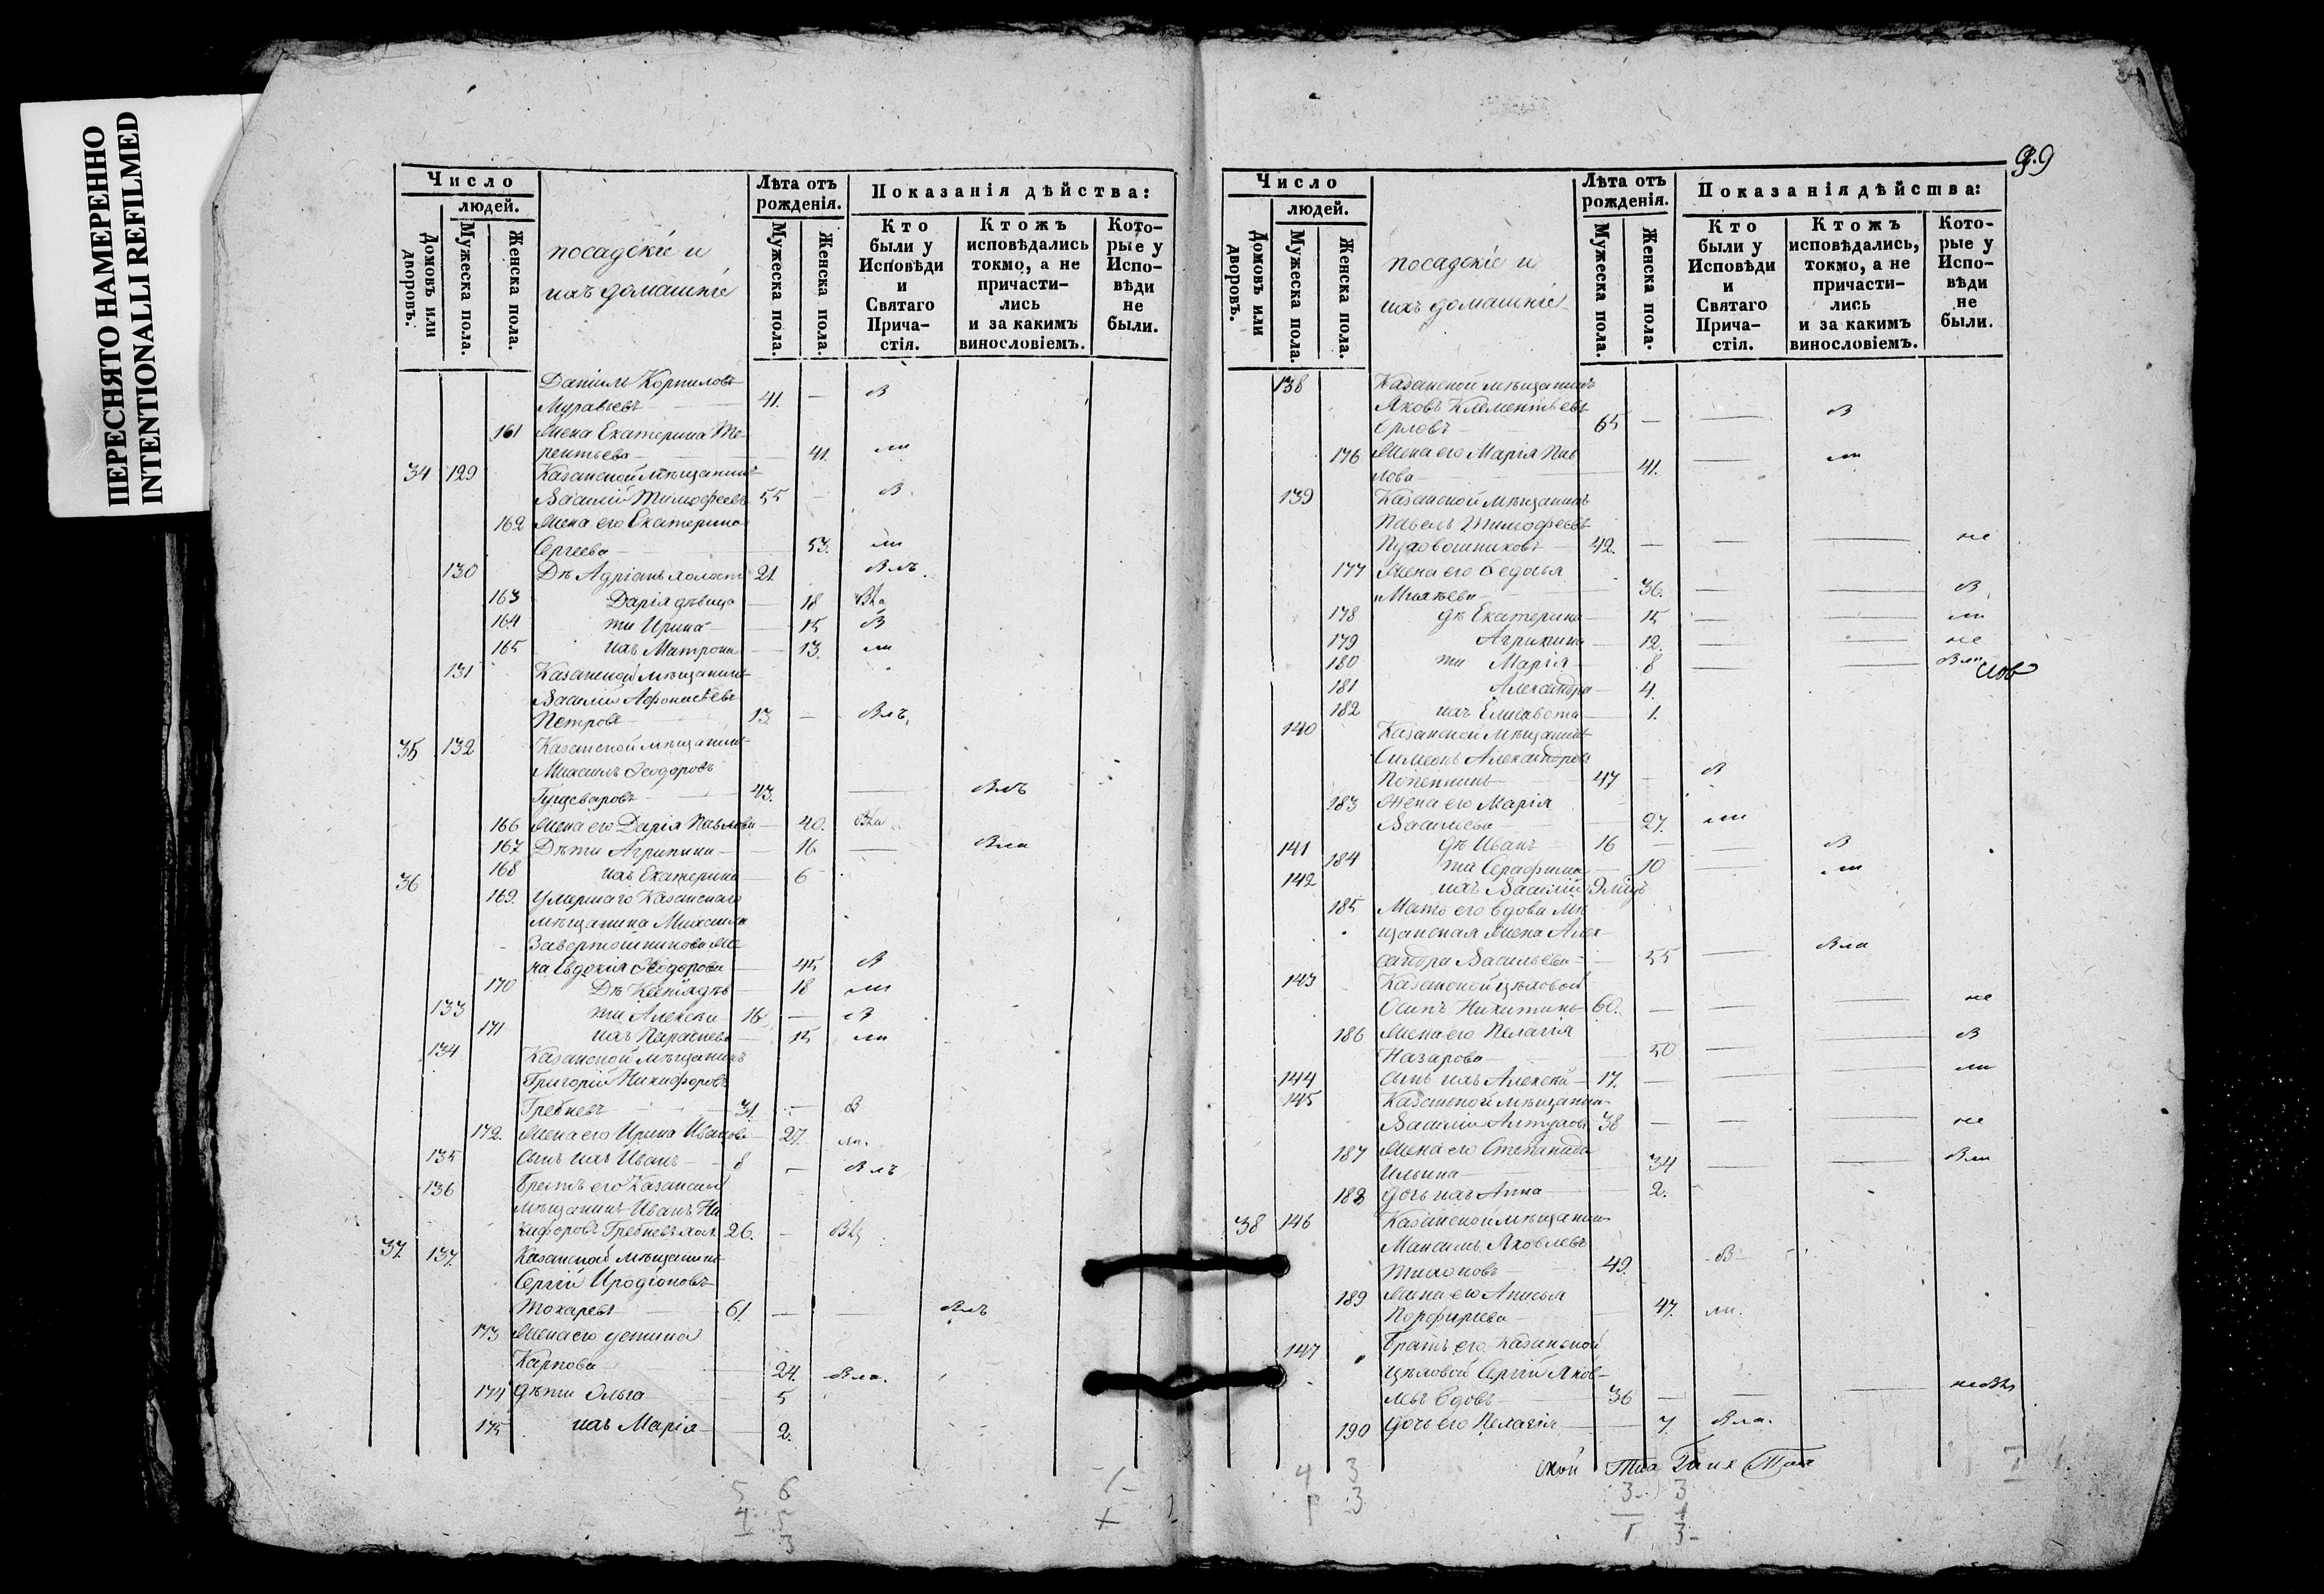 ПЕРЕСНЯТО НАМЕРЕННО
INTENTIONALLI REFILMED
Число
людей.
Домовъ или дворовъ.
Мужеска пола.
Женска пола.
посадскіе и
ихъ домашніе
Лѣта отъ рожденія.
Мужеска пола.
Женска пола.
Показанія дѣйства:
Кто были у Исповѣди и Святаго Прича-стія.
Ктожъ исповѣдались токмо, а не причасти-лись и за какимъ винословіемъ.
Кото-рые у Испо-вѣди не были.
Даніилъ Корниловъ
Муравьевъ 41. — В
161 Жена Екатерина Те-
рентьева — 41 ли
34 129 Казанской мѣщанинъ
Василій Тимофеевъ 55 — В.
162 Жена его Екатерина
Сергеева — 53. ли
130 Дѣ Адріанъ холостъ 21. Блъ
163 Дарія дѣвица — 18
164 ти Ирина — 15 В
165 ихъ Матрона — 13. ли
131 Казанской мѣщанинъ
Василій Афонасьевъ
Петровъ 13 — Блъ,
35 132 Казанской мѣщанинъ
Михаилъ Ѳеодоровъ
43. — Блъ
166 Жена его Дарія Павлова — 40.
167 Дѣти Агрипина — 16 — Бла
168 ихъ Екатерина 6
36
169. Умершаго Казанскаго
мѣщанина Михаила
же
на Евдокія Ѳеодорова — 45 В
170 Дѣ Ксенія дѣв 18 ли
133 ти Алексѣй 16 — В
171 ихъ Парасковья 15 ли
134 Казанской мѣщанинъ
Григорій Никифоровъ
Гребневъ — 31. — В
172. Жена его Ирина Иванова — 27. ли.
135 Сынъ ихъ Иванъ — 8 — Блъ
136 Братъ его Казанской
мѣщанинъ Иванъ Ни
кифоровъ Гребневъ хол. 26. —
37. 137. Казанской мѣщанинъ
Сергій Иродіоновъ
Токаревъ 61. — Блъ
173 Жена его
Карпова — 24. Бла.
174 Дѣти Ольга 5
175 ихъ Марія — 2.
99
Число
людей.
Домовъ или дворовъ.
Мужеска пола.
Женска пола.
посадскіе и
ихъ домашніе
Лѣта отъ рожденія.
Мужеска пола.
Женска пола.
Показанія дѣйства:
Кто были у Исповѣди и Святаго Прича-стія.
Ктожъ исповѣдались, токмо, а не причасти-лись и за какимъ винословіемъ.
Кото-рые у Испо-вѣди не были.
138 Казанской мѣщанинъ
Яковъ Клементьевъ
Орловъ 65 — — В
176 Жена его Марія Пав
лова — 41. — ли
139 Казанской мѣщанинъ
Павелъ Тимофеевъ
42. — — — не
177 Жена его Ѳедосья
36. — — В
178 дѣ Екатерина — 15 — — ли
179 Агрипина 12. — — не
180 ти Марія 8 — — Бли
181 Александра — 4.
182 ихъ Елисавета — 1.
140 Казанской мѣщанинъ
Симеонъ Александровъ
47 — В
183 Жена его Марія
Васильева — 27. ли
141 дѣ Иванъ 16 — — В
184 ти Серафима — 10 — ли
142 ихъ Василій 9 мѣцъ
185 Мать его вдова мѣ
щанская жена Алек-
сандра Васильева — 55 — Бла
143 Казанской цѣховой
Осипъ Никитинъ 60. — — не
186 Жена его Пелагія
Назарова — 50 — — В
144 Сынъ ихъ Алексѣй — 17. — — ли
145 Казанской мѣщанин-
Василій 38 — — — не
187 Жена его Степанида
Ильина — 34 — — Бли
188 Дочь ихъ Анна — 2.
38 146 Казанской мѣщанин-
Максимъ Яковлевъ
Тихоновъ 49. В
189 Жена его Анисья
Порфирьева — 47. ли.
147 Братъ его Казанской
цѣховой Сергій Яков-
левъ вдовъ 36 — — —
190 Дочь его Пелагія — 7. Бла.